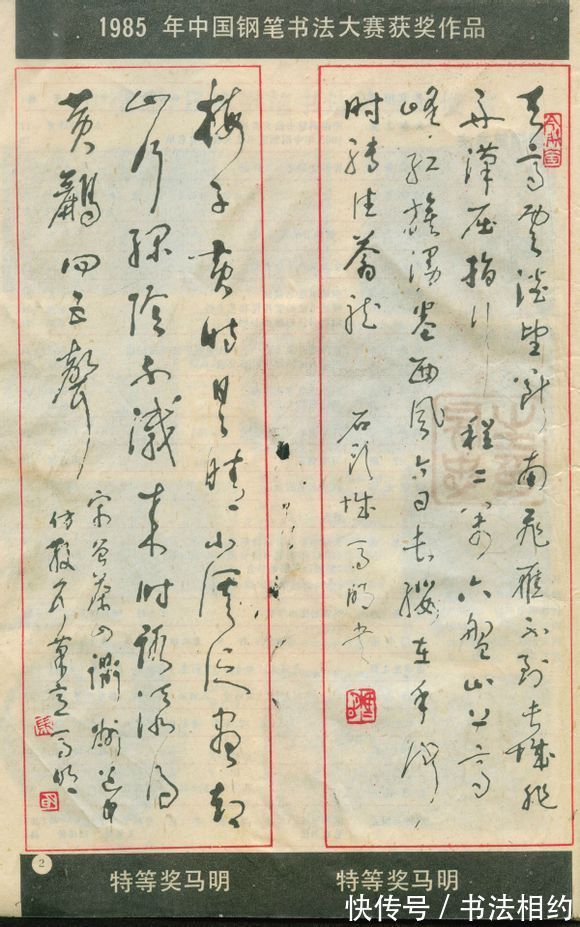 1985 年中国钢笔书法大赛获奖作品
天高雲淡望断南飛雁不到长城非
好汉屈指行程二萬六盘山上高
峰红旗漫卷西风今日长缨在手何
时缚住苍龙 石头城马明书
梅子黄时日日晴小溪泛尽却
山行绿阴不减来时路添得
黄鹂四五声
宋曾茶山衢州道中
仿 笔意马明
2
特等奖马明
特等奖马明
快传号/书法相约